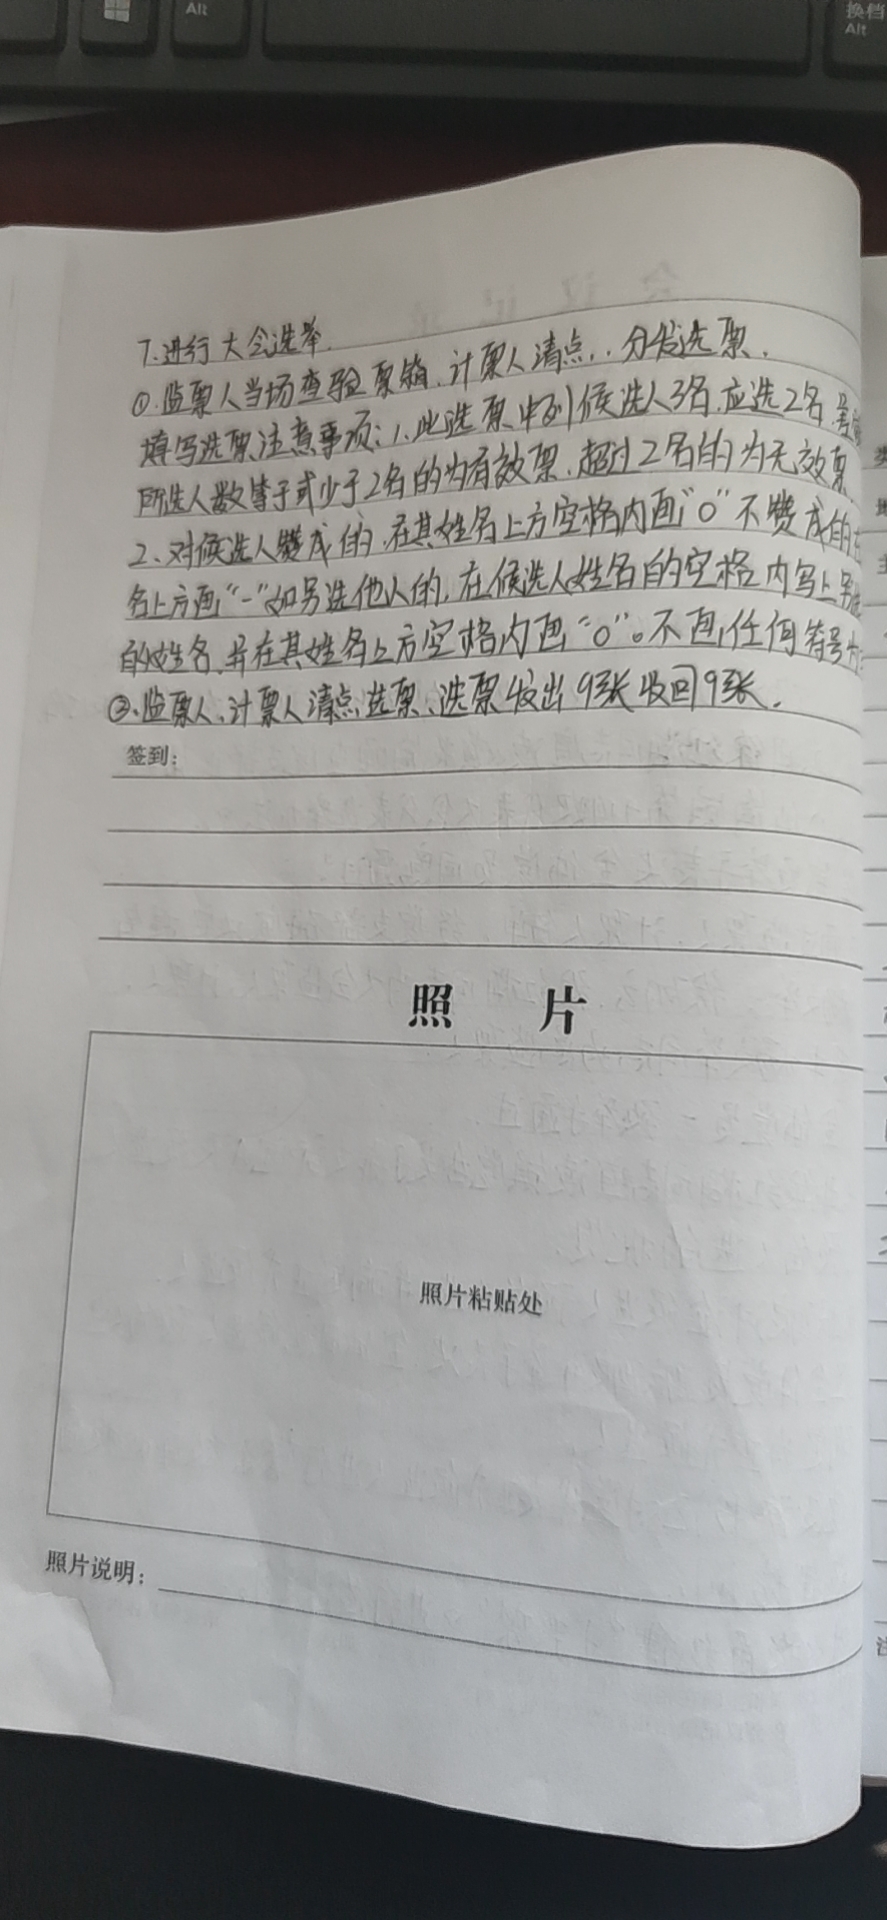 Alt
换档
Alt
7.进行大会选举.
①.监票人当场查验票箱.计票人清点..分发选票.
填写选票注意事项:1.此选票中列候选人3名.应选2名.
所选人数等于或少于2名的为有效票.超过2名的为无效票
2、对候选人赞成的.在其姓名上方空格内画"O"不赞成的
名上方画"-"如另选他人的.在候选人姓名自的空格内写上另选
的姓名.并在其姓名上方空格内画"O"。不画任何符号
②.监票人、计票人清点选票、选票发出9张收回9张.
签到:
照 片
照片粘贴处
照片说明: